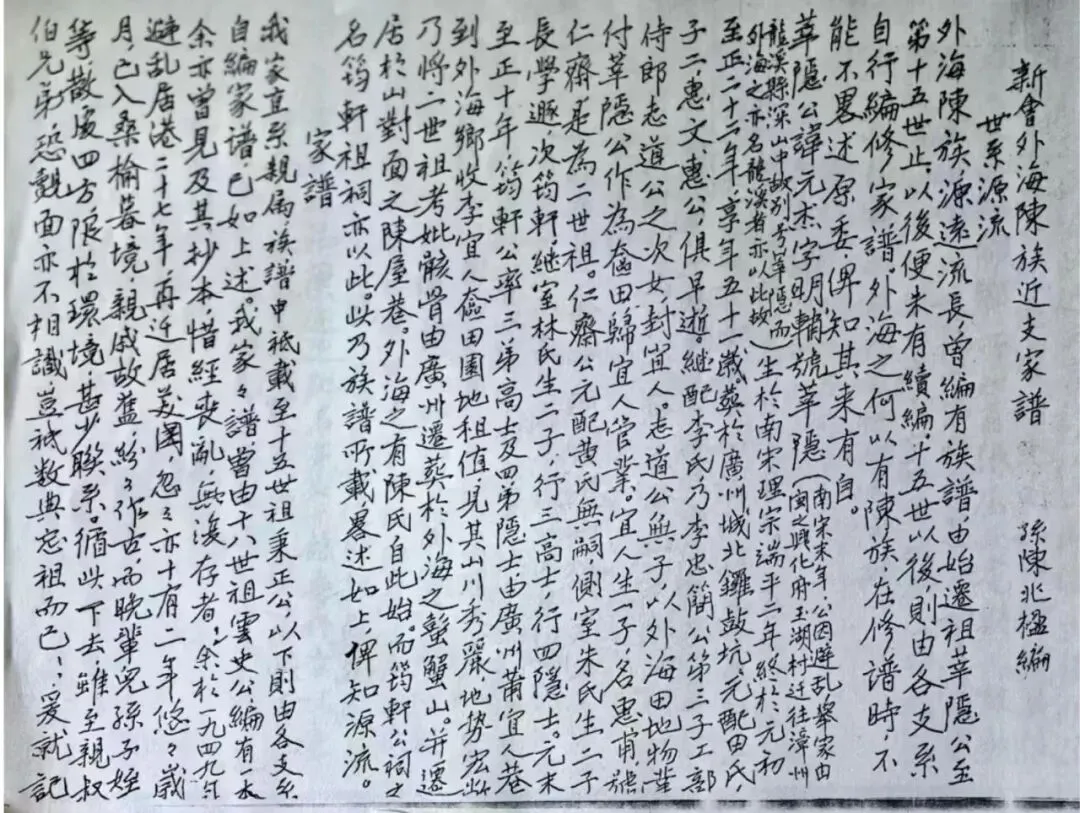 新會外海陳族近支家譜 孫陳兆楹編
世系源流
外海陳族,源遠流長,曾編有族譜,由始遷祖莘隱公至
第十五世止,以後便未有續編。十五世以後,則由各支系
自行編修家譜。外海之何以有陳族,在修譜時不
能不畧述原委,俾知其來有自。
莘隱公諱元杰字明韜號莘隱(南宋末年,公因避乱挙家由
閩之興化府玉湖村迁往漳州
龍溪縣深山中故别号莘隱而
外海之亦名龍溪者亦以此故)生於南宋理宗端平二年終於元初
至正二十二年,享年五十一歲葬於廣州城北鑼鼓坑。元配田氏,
子二,惠文,惠公,俱早逝。継配李氏乃李忠簡公第三子工部
侍郎志道公之次女,封宜人。志道公無子,以外海田地物業
付莘隱公作為奩田,歸宜人管業。宜人生一子,名惠甫號
仁齋,是為二世祖。仁齋公元配黄氏無嗣,側室朱氏生二子
長學遯,次筠軒,継室林氏生二子,行三高士,行四隱士。元末
至正十年,筠軒公率三弟高士及四弟隱士由廣州莆宜人巷
到外海鄉收李宜人奩田園地租值,見其山川秀麗,地势宏厰
乃將二世祖考妣骸骨由廣州遷葬於外海之螃蟹山。并遷
居於山對面之陳屋巷。外海之有陳氏自此始。而筠軒公祠之
名筠軒祖祠亦以此。此乃族譜所載畧述如上俾知源流。
家譜
我家直系親属族譜中祇載至十五世祖秉正公,以下則由各支系
自編家譜,已如上述。我家々譜,曾由十八世祖雲史公編有一本
余亦曾見及其抄本,惜經丧亂,無復存者,余於一九四九年
避乱居港二十七年,再迁居美國忽々亦十有二年悠々歲
月,已入桑榆暮境,親戚故舊,紛々作古而晚輩兒孫子姪
等,散處四方限於環境,甚少聯系。循此下去,雖至親叔
伯兄弟恐覿面亦不相識豈祇数典忘祖而已,爰就記